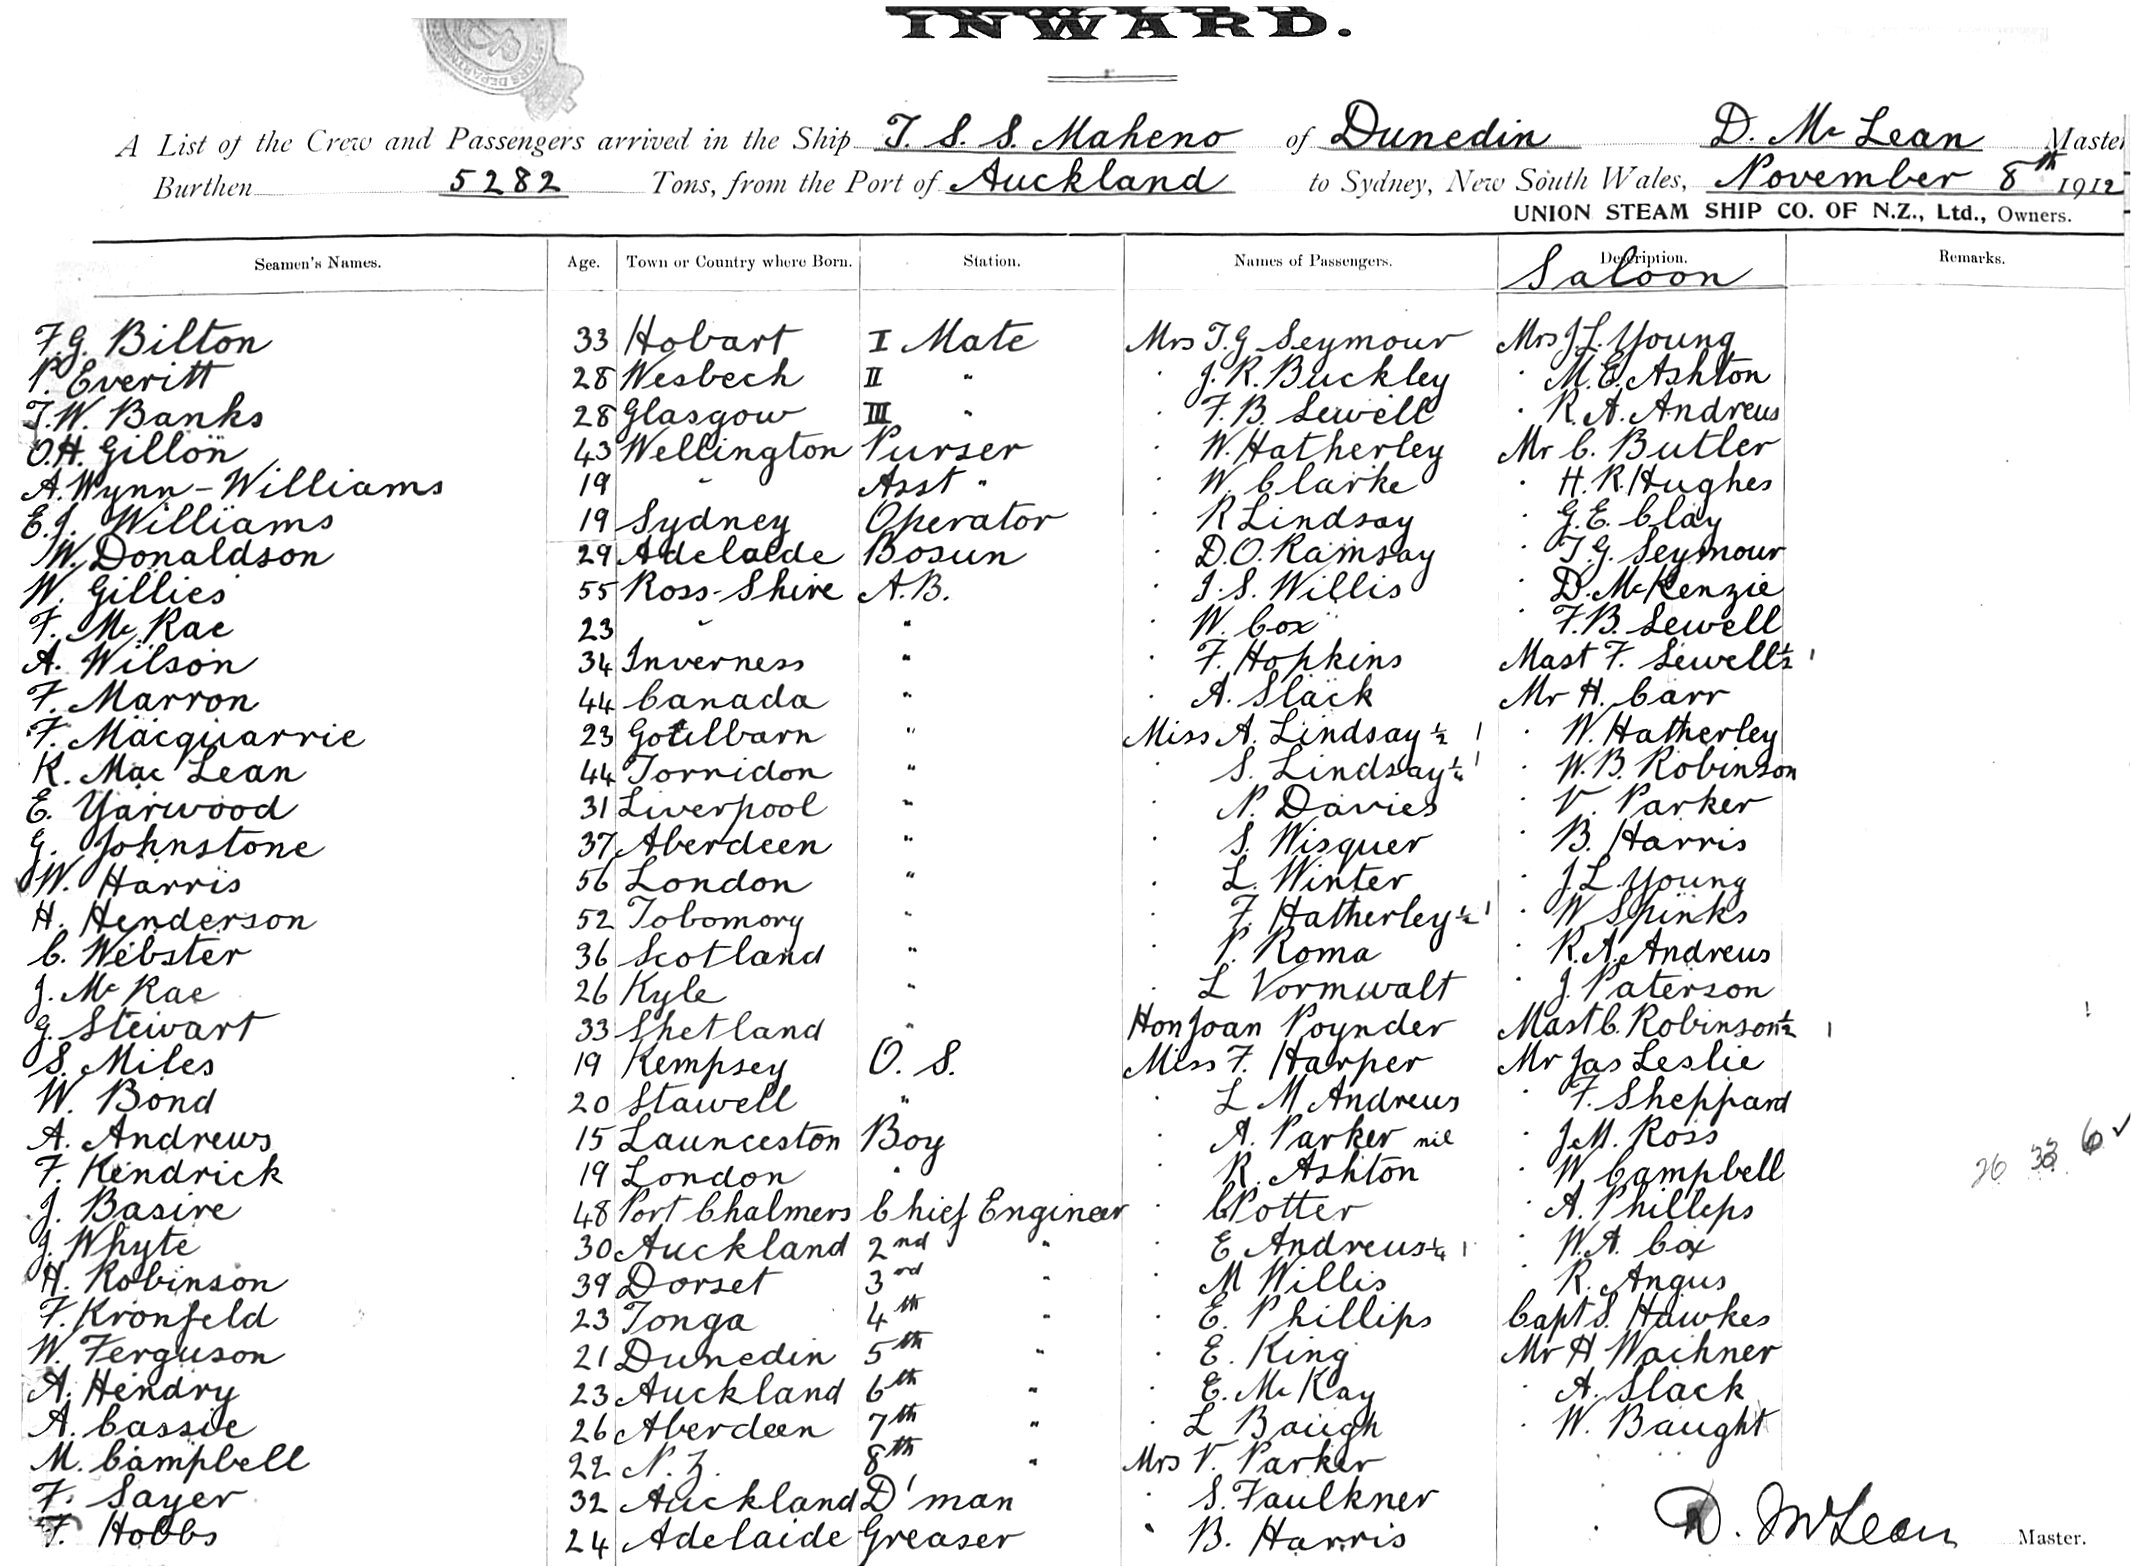 INWARD.
A List of the Crew and Passengers arrived in the Ship T. S. S. Maheno of Dunedin D. Mc Lean Master
Burthen 5282 Tons, from the Port of Auckland to Sydney, New South Wales, November 8th 1912
UNION STEAM SHIP CO. OF N.Z., Ltd., Owners.
Seamen's Names. Age. Town or Country where Born. Station. Names of Passengers. Description. Remarks.
Saloon
F.G. Bilton 33 Hobart I Mate Mrs T.G Seymour Mrs J.L. Young
P. Everitt 28 Wesbech II " " J. R. Buckley " M.E. Ashton
T.W. Banks 28 Glasgow III " " F. B. Sewell " R. A. Andreus
O.H. Gillon 43 Wellington Purser " W. Hatherley Mr C. Butler
A. Wynn-Williams 19 " Asst " " W. Clarke " H. R. Hughes
E.J. Williams 19 Sydney Operator " R Lindsay " G.E. Clay
W. Donaldson 29 Adelaide Bosun " D.O. Ramsay " T.G. Seymour
W. Gillies 55 Ross-Shire A.B. " J.S. Willis " D. McKenzie
F. Mc Rae 23 " " " W. Cox " F.B. Sewell
A. Wilson 34 Inverness " " F. Hopkins Mast F. Sewell ½ 1
F. Marron 44 Canada " " A. Slack Mr H. Carr
F. Macquarrie 23 Gotilbarn " Miss A. Lindsay ½ 1 " W. Hatherley
K. Mac Lean 44 Torridon " " S. Lindsay ¼ 1 " W.B. Robinson
E. Yarwood 31 Liverpool " " N. Davies " V. Parker
G. Johnstone 37 Aberdeen " " S. Wisquer " B. Harris
W. Harris 56 London " " L. Winter " J.L Young
H. Henderson 52 Tobomory " " F. Hatherley ½ 1 " W Spinks
C. Webster 36 Scotland " " P. Roma " R.A. Andreus
J. Mc Rae 26 Kyle " " L Vormwalt " J. Paterson
G. Stewart 33 Shetland " Hon Joan Poynder Mast C. Robinson ½ 1
S. Miles 19 Kempsey O. S. Miss F. Harper Mr Jas Leslie
W. Bond 20 Stawell " " L M Andreus " F. Sheppard
A. Andrews 15 Launceston Boy " A. Parker nil " J.M. Ross
F. Kendrick 19 London " " R. Ashton " W Campbell 26 33 6 ✓
J. Basire 48 Port Chalmers Chief Engineer " C Potter " A. Phillips
J. Whyte 30 Auckland 2nd " " E Andreus ¼ 1 " W.A. Cox
H. Robinson 39 Dorset 3rd " " M Willis " R. Angus
F. Kronfeld 23 Tonga 4th " " E. Phillips Capt S. Hawkes
W. Ferguson 21 Dunedin 5th " " E. King Mr H Wachner
A. Hendry 23 Auckland 6th " " E. Mc Kay " A. Slack
A. Cassie 26 Aberdeen 7th " " L Baugh " W. Baught
M. Campbell 22 N.Z. 8th " Mrs V. Parker
F. Sayer 32 Auckland D'man " S. Faulkner
F. Hobbs 24 Adelaide Greaser " B. Harris D. McLean Master.